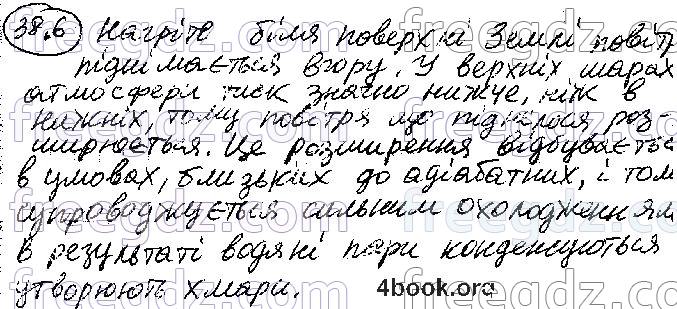 38.6 Нагріте біля поверхні Землі повіт
піднімається вгору. У верхніх шарах
атмосфери тиск значно нижче, ніж в
нижніх, тому повітря що піднялося роз-
ширюється. Це розширення відбуваєть
в умовах, близьких до адіабатних, і том
супроводжується сильним охолодженням
В результаті водяні пари конденсуються
утворюють хмари.
4book.org